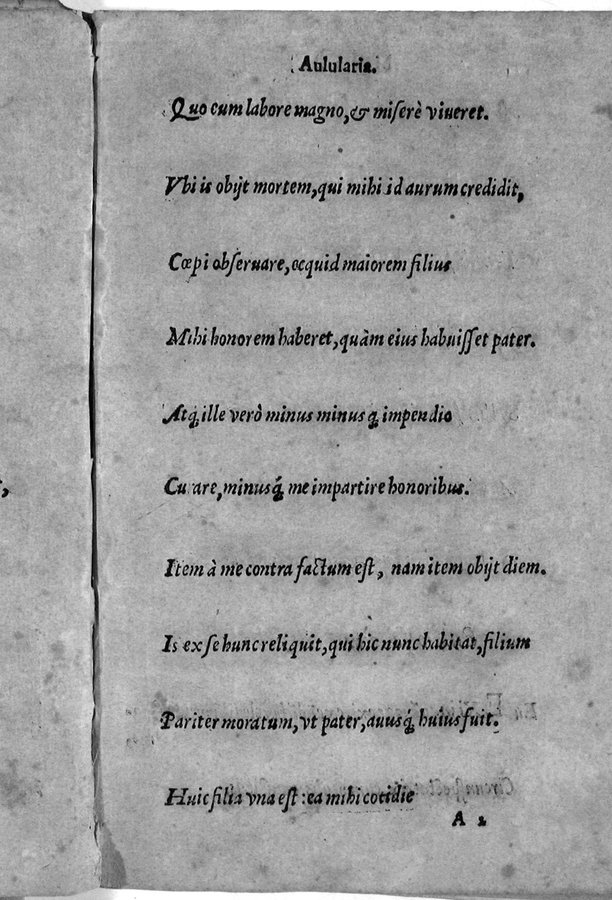 Aulularia.
Quo cum labore magno, & miserè viueret.
Vbi is obijt mortem, qui mihi id aurum credidit,
Cœpi obseruare, ecquid maiorem filius
Mihi honorem haberet, quàm eius habuisset pater.
Atq; ille verò minus minus q; impendio
Curare, minusq́; me impartire honoribus.
Item à me contra factum est, nam item obijt diem.
Is ex se hunc reliquit, qui hic nunc habitat, filium
Pariter moratum, vt pater, auusq́; huius fuit.
Huic filia vna est: ea mihi cotidie
A 2